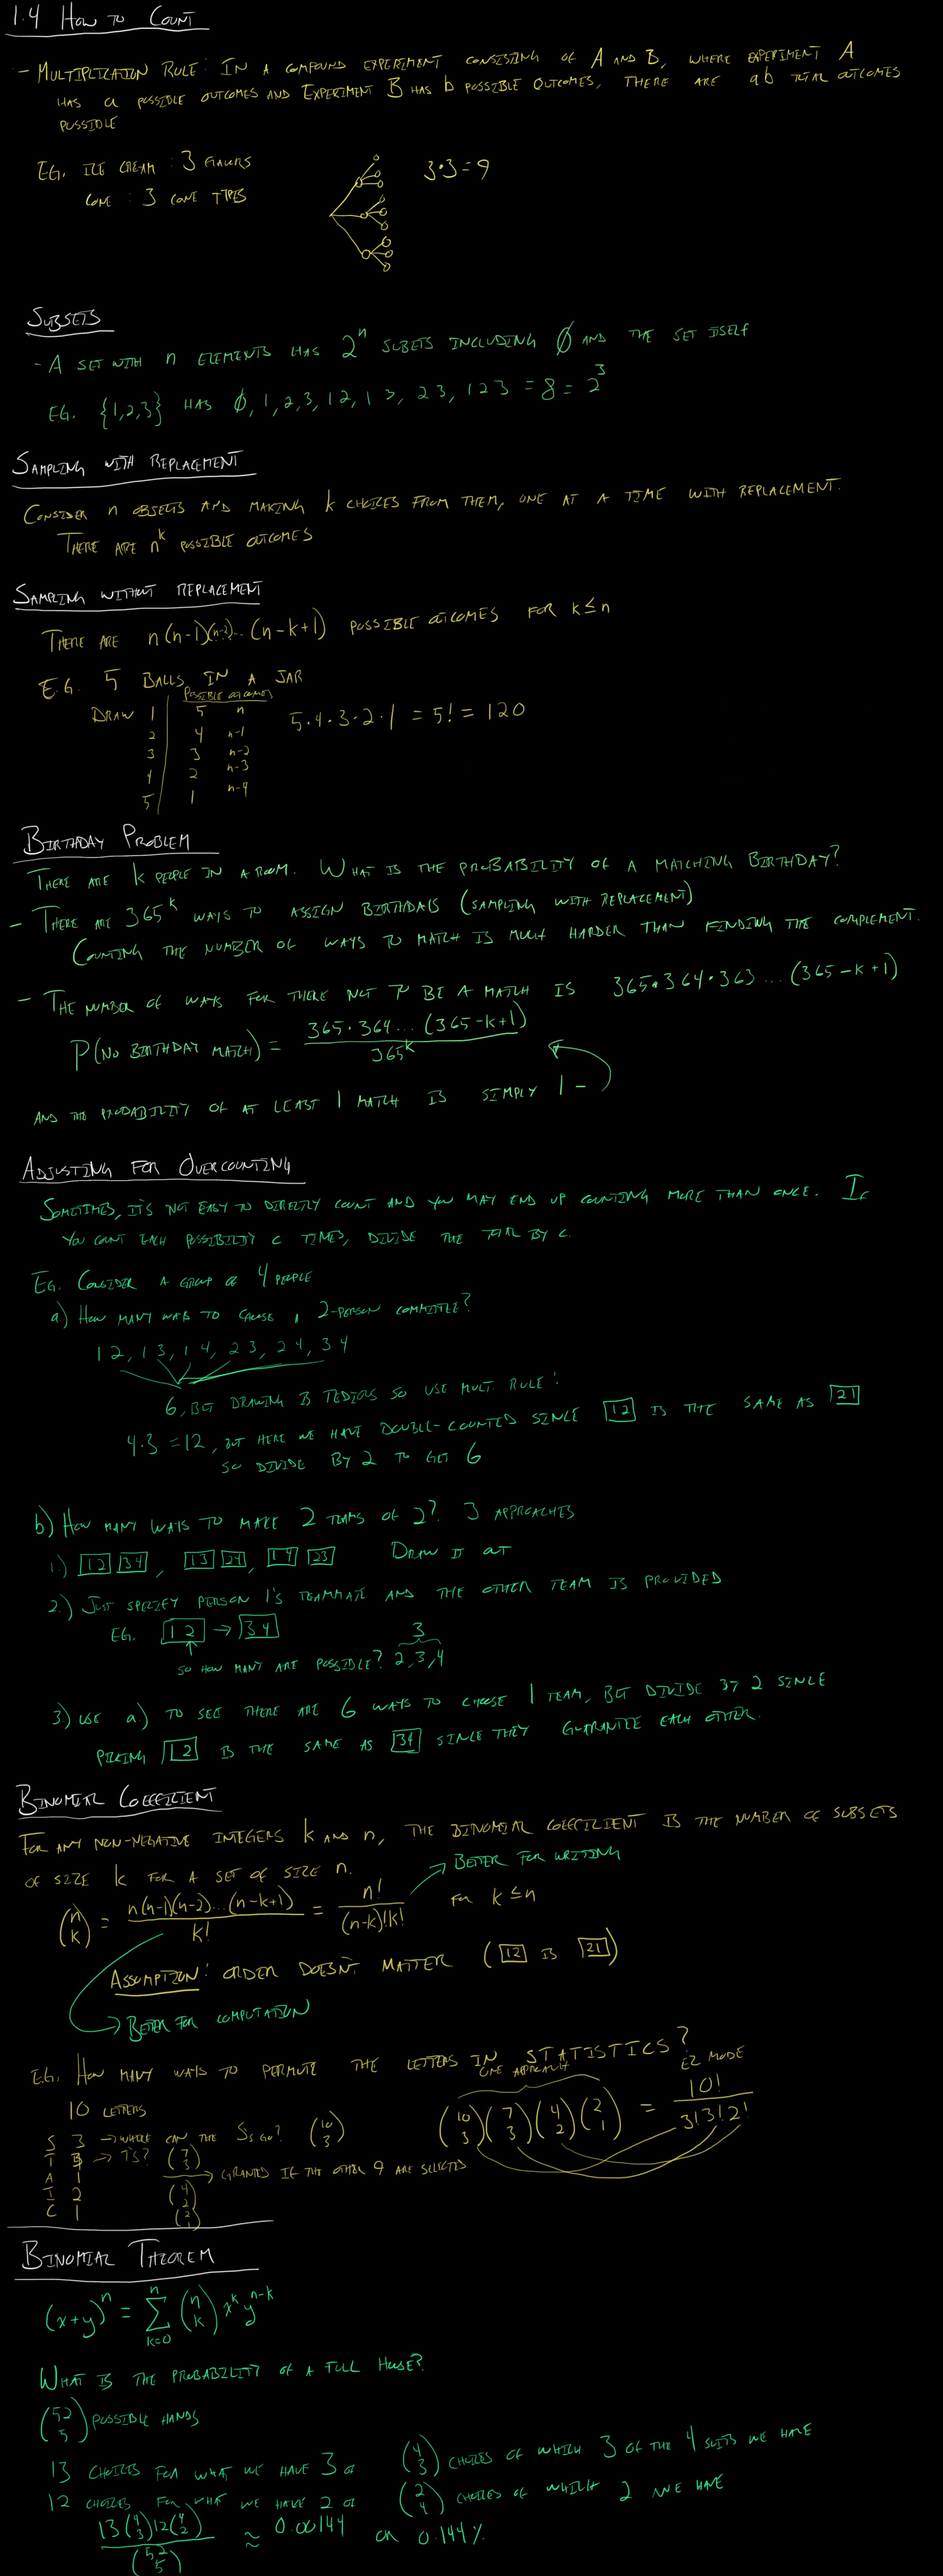 1.4 HOW TO COUNT
- MULTIPLICATION RULE: IN A COMPOUND EXPERIMENT CONSISTING OF A AND B, WHERE EXPERIMENT A
HAS a POSSIBLE OUTCOMES AND EXPERIMENT B HAS b POSSIBLE OUTCOMES, THERE ARE ab TOTAL OUTCOMES
POSSIBLE
EG. ICE CREAM : 3 FLAVORS
CONE : 3 CONE TYPES
3·3=9
SUBSETS
- A SET WITH n ELEMENTS HAS 2^n SUBSETS INCLUDING ∅ AND THE SET ITSELF
EG. {1,2,3} HAS ∅, 1, 2, 3, 12, 13, 23, 123 = 8 = 2^3
SAMPLING WITH REPLACEMENT
CONSIDER n OBJECTS AND MAKING k CHOICES FROM THEM, ONE AT A TIME WITH REPLACEMENT.
THERE ARE n^k POSSIBLE OUTCOMES
SAMPLING WITHOUT REPLACEMENT
THERE ARE n(n-1)(n-2)...(n-k+1) POSSIBLE OUTCOMES FOR k≤n
E.G. 5 BALLS IN A JAR
POSSIBLE OUTCOMES
DRAW 1 5 n 5·4·3·2·1 = 5! = 120
2 4 n-1
3 3 n-2
4 2 n-3
5 1 n-4
BIRTHDAY PROBLEM
THERE ARE k PEOPLE IN A ROOM. WHAT IS THE PROBABILITY OF A MATCHING BIRTHDAY?
- THERE ARE 365^k WAYS TO ASSIGN BIRTHDAYS (SAMPLING WITH REPLACEMENT)
COUNTING THE NUMBER OF WAYS TO MATCH IS MUCH HARDER THAN FINDING THE COMPLEMENT.
- THE NUMBER OF WAYS FOR THERE NOT TO BE A MATCH IS 365·364·363...(365-k+1)
P(NO BIRTHDAY MATCH) = 365·364...(365-k+1) / 365^k
AND THE PROBABILITY OF AT LEAST 1 MATCH IS SIMPLY 1 -
ADJUSTING FOR OVERCOUNTING
SOMETIMES, IT'S NOT EASY TO DIRECTLY COUNT AND YOU MAY END UP COUNTING MORE THAN ONCE. IF
YOU COUNT EACH POSSIBILITY c TIMES, DIVIDE THE TOTAL BY c.
EG. CONSIDER A GROUP OF 4 PEOPLE
a) HOW MANY WAYS TO CHOOSE A 2-PERSON COMMITTEE?
12, 13, 14, 23, 24, 34
6, BUT DRAWING IS TEDIOUS SO USE MULT. RULE:
4·3 = 12, BUT HERE WE HAVE DOUBLE-COUNTED SINCE 12 IS THE SAME AS 21
SO DIVIDE BY 2 TO GET 6
b) HOW MANY WAYS TO MAKE 2 TEAMS OF 2? 3 APPROACHES
1.) 12 34, 13 24, 14 23 DRAW IT OUT
2.) JUST SPECIFY PERSON 1'S TEAMMATE AND THE OTHER TEAM IS PROVIDED
EG. 12 → 34
3
SO HOW MANY ARE POSSIBLE? 2,3,4
3) USE a) TO SEE THERE ARE 6 WAYS TO CHOOSE 1 TEAM, BUT DIVIDE BY 2 SINCE
PICKING 12 IS THE SAME AS 34 SINCE THEY GUARANTEE EACH OTHER.
BINOMIAL COEFFICIENT
FOR ANY NON-NEGATIVE INTEGERS k AND n, THE BINOMIAL COEFFICIENT IS THE NUMBER OF SUBSETS
OF SIZE k FOR A SET OF SIZE n.
→ BETTER FOR WRITING
(n k) = n(n-1)(n-2)...(n-k+1) / k! = n! / (n-k)!k! FOR k≤n
ASSUMPTION: ORDER DOESN'T MATTER (12 IS 21)
→ BETTER FOR COMPUTATION
E.G. HOW MANY WAYS TO PERMUTE THE LETTERS IN STATISTICS?
ONE APPROACH EZ MODE
10 LETTERS
(10 3)(7 3)(4 2)(2 1) = 10! / 3!3!2!
S 3 → WHERE CAN THE S's GO? (10 3)
T 3 → T's? (7 3)
A 1 → GRANTED IF THE OTHER 9 ARE SELECTED
I 2 (4 2)
C 1 (2 1)
BINOMIAL THEOREM
(x+y)^n = ∑_{k=0}^{n} (n k) x^k y^{n-k}
WHAT IS THE PROBABILITY OF A FULL HOUSE?
(52 5) POSSIBLE HANDS
13 CHOICES FOR WHAT WE HAVE 3 OF (4 3) CHOICES OF WHICH 3 OF THE 4 SUITS WE HAVE
12 CHOICES FOR WHAT WE HAVE 2 OF (2 4) CHOICES OF WHICH 2 WE HAVE
13(4 3)12(4 2) / (52 5) ≈ 0.00144 OR 0.144%